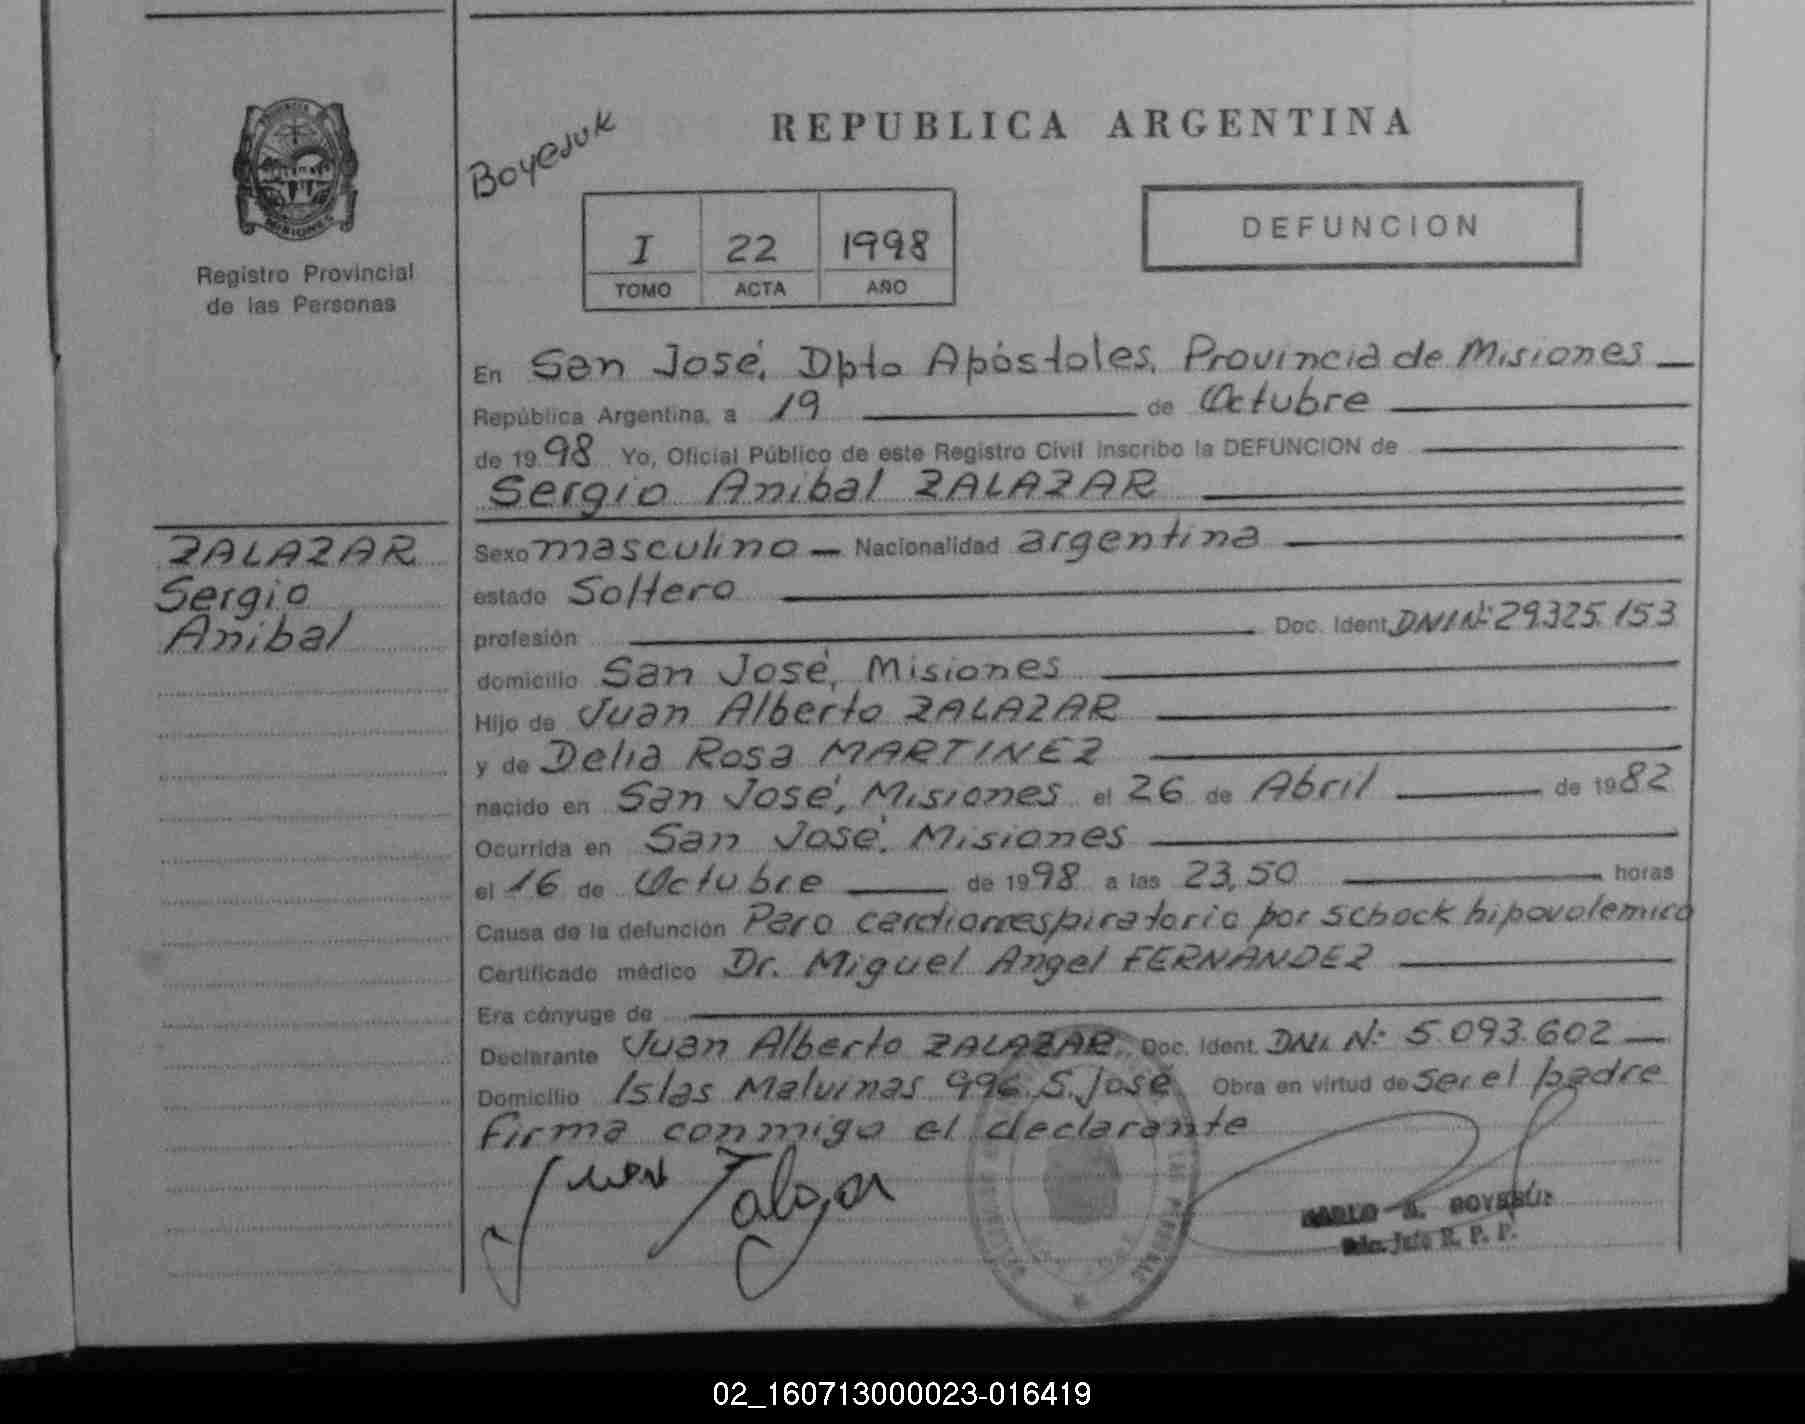 REPUBLICA ARGENTINA
Boyejuk
MISIONES
Registro Provincial
de las Personas
I 22 1998
TOMO ACTA AÑO
DEFUNCION
En San José, Dpto Apóstoles, Provincia de Misiones
República Argentina, a 19 de Octubre
de 1998 Yo, Oficial Público de este Registro Civil inscribo la DEFUNCION de
Sergio Anibal ZALAZAR
ZALAZAR
Sergio
Anibal
Sexo masculino Nacionalidad argentina
estado Soltero
profesión Doc. Ident. DNI Nº 29.325.153
domicilio San José, Misiones
Hijo de Juan Alberto ZALAZAR
y de Delia Rosa MARTINEZ
nacido en San José, Misiones el 26 de Abril de 1982
Ocurrida en San José, Misiones
el 16 de Octubre de 1998 a las 23,50 horas
Causa de la defunción Paro cardiorrespiratorio por schock hipovolemico
Certificado médico Dr. Miguel Angel FERNANDEZ
Era cónyuge de
Declarante Juan Alberto ZALAZAR, Doc. Ident. DNI. Nº 5.093.602
Domicilio Islas Malvinas 996. S. José Obra en virtud de ser el padre
Firma conmigo el declarante
Juan Zalazar
R. P. P.
02_160713000023-016419